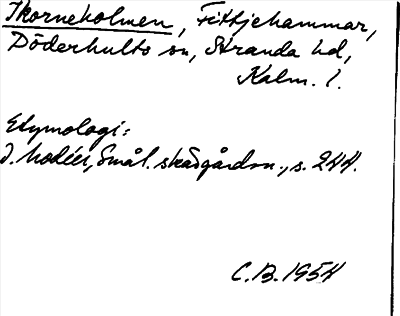 Skorneholmen, Fittjehammar,
Döderhults sn, Stranda hd,
Kalm. l.
Etymologi:
J. Modéer, Smål. skärgårdsn., s. 244.
C.B. 1954